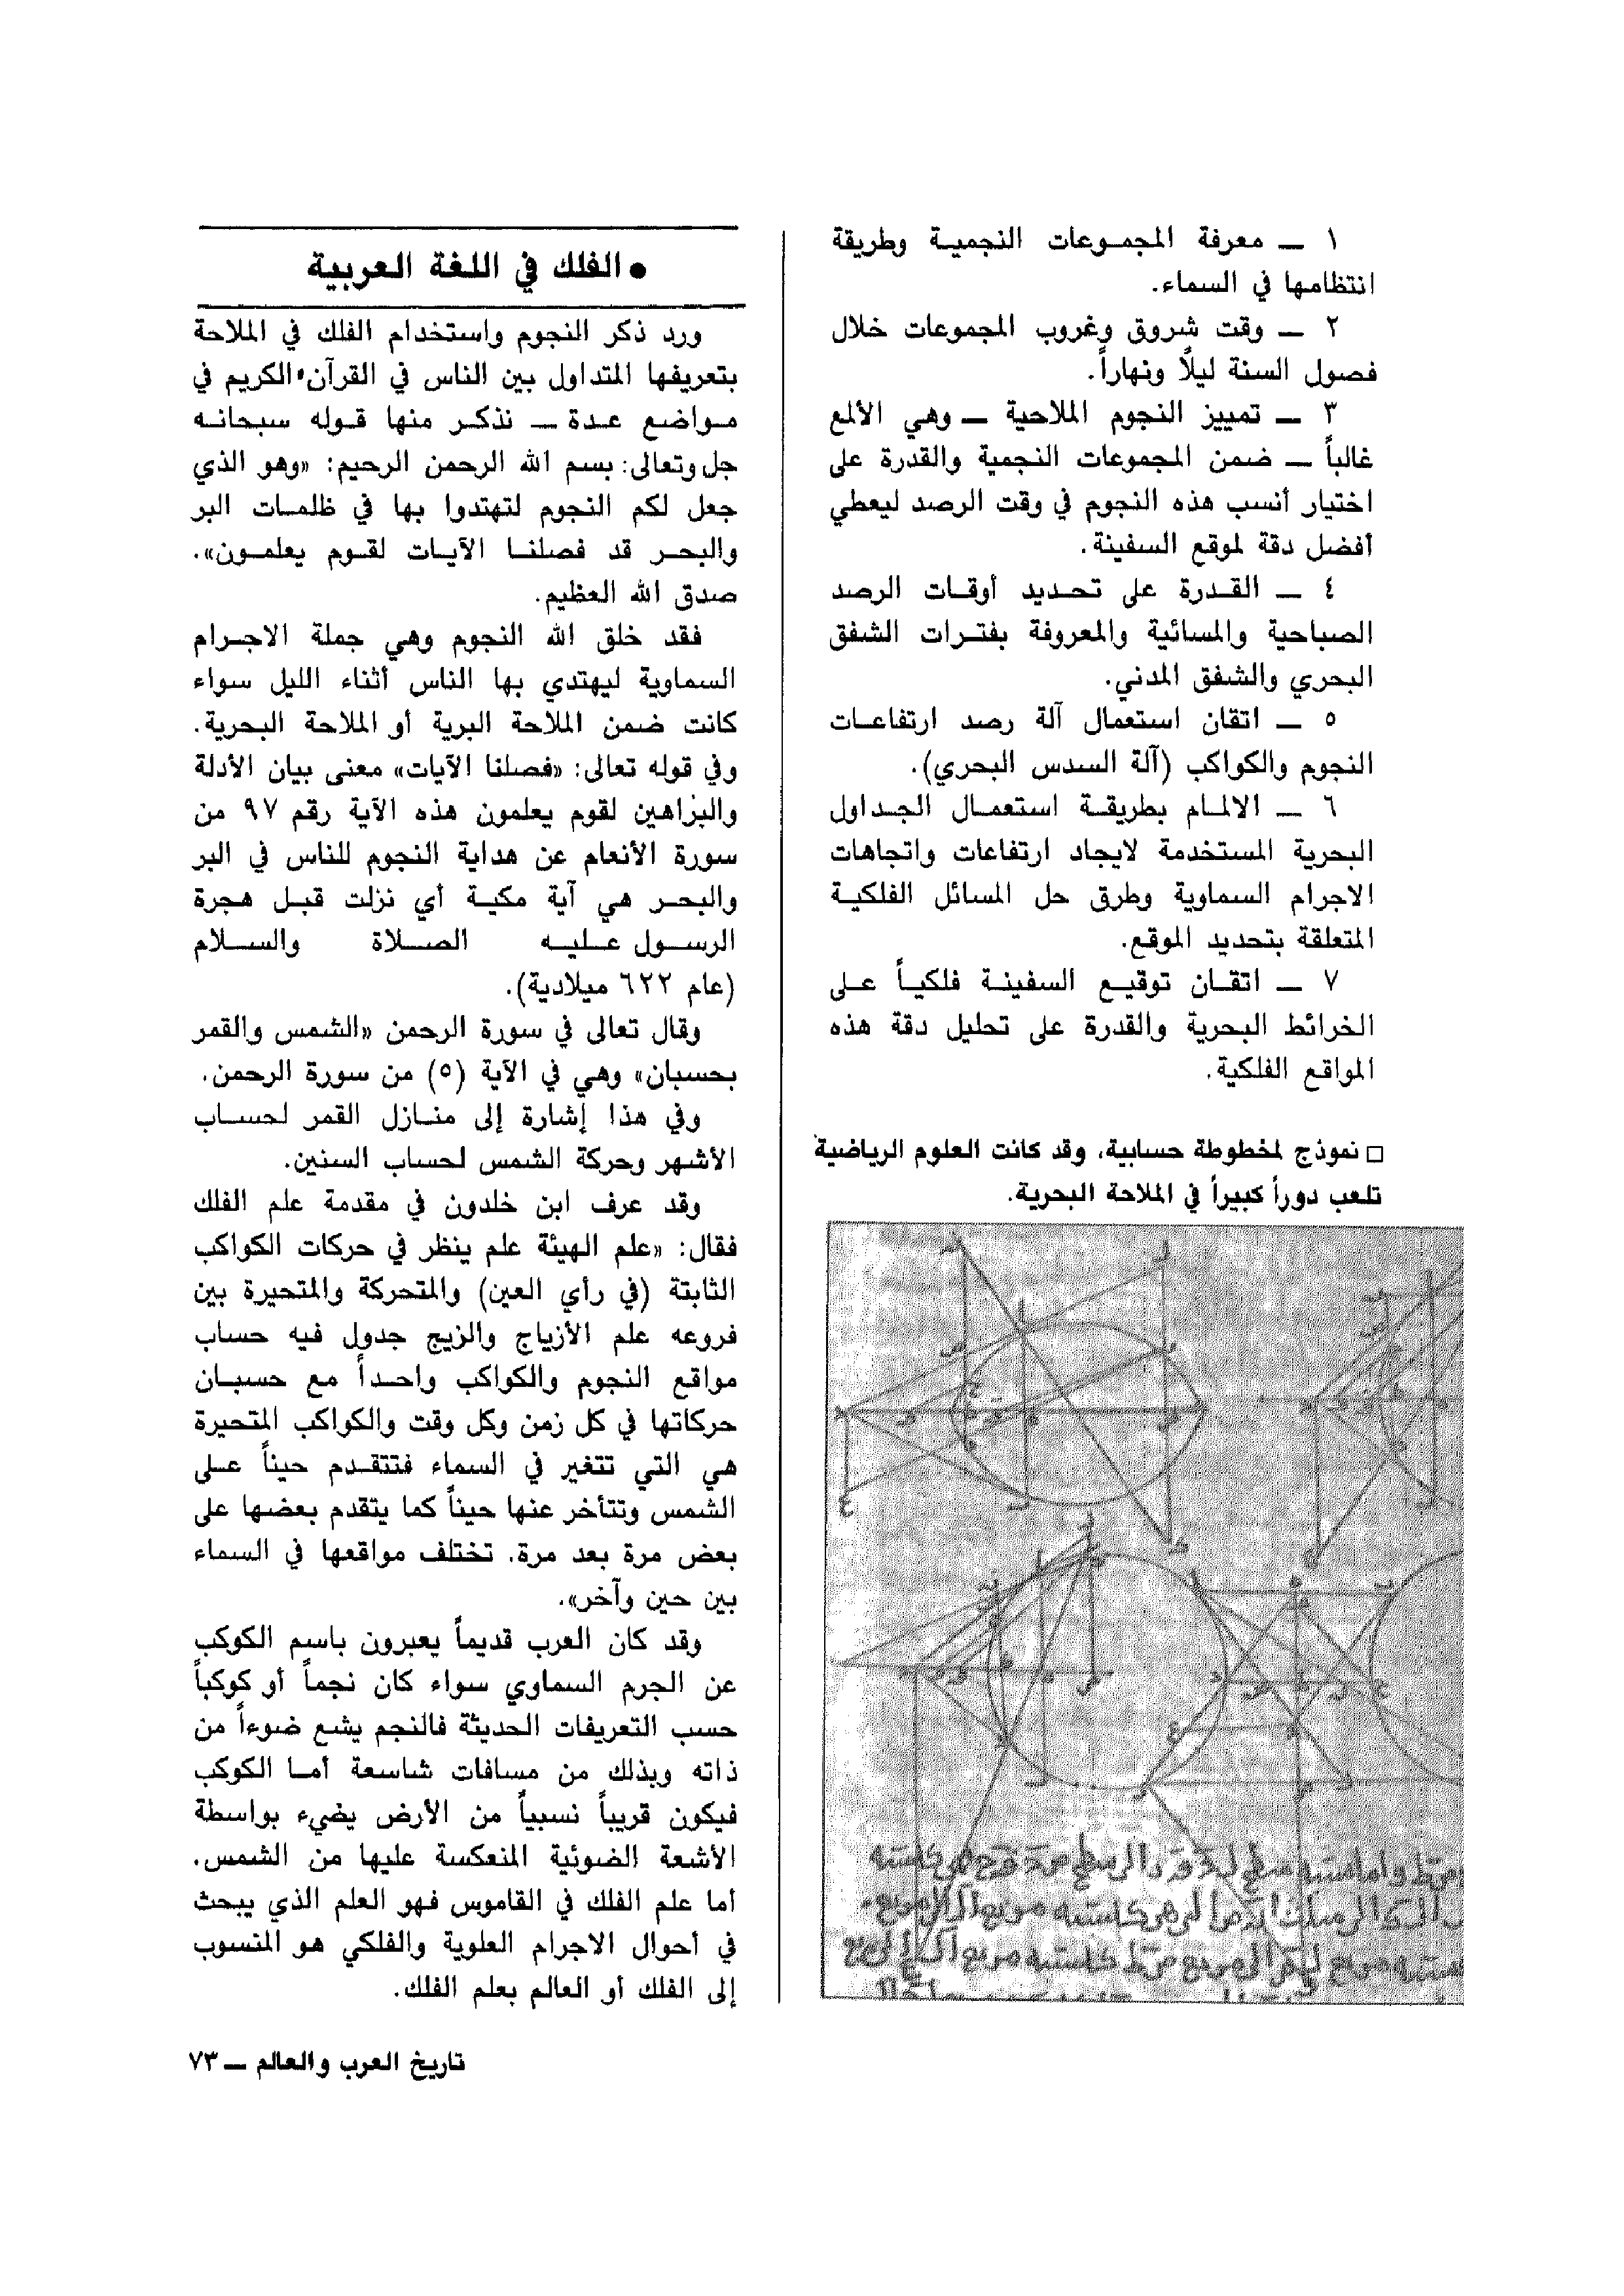 ١ ــ معرفة المجموعات النجمية وطريقة
انتظامها في السماء.
٢ ــ وقت شروق وغروب المجموعات خلال
فصول السنة ليلاً ونهاراً.
٣ ــ تمييز النجوم الملاحية ــ وهي الألمع
غالباً ــ ضمن المجموعات النجمية والقدرة على
اختيار أنسب هذه النجوم في وقت الرصد ليعطي
أفضل دقة لموقع السفينة.
٤ ــ القدرة على تحديد أوقات الرصد
الصباحية والمسائية والمعروفة بفترات الشفق
البحري والشفق المدني.
٥ ــ اتقان استعمال آلة رصد ارتفاعات
النجوم والكواكب (آلة السدس البحري).
٦ ــ الالمام بطريقة استعمال الجداول
البحرية المستخدمة لايجاد ارتفاعات واتجاهات
الاجرام السماوية وطرق حل المسائل الفلكية
المتعلقة بتحديد الموقع.
٧ ــ اتقان توقيع السفينة فلكياً على
الخرائط البحرية والقدرة على تحليل دقة هذه
المواقع الفلكية.
□ نموذج لمخطوطة حسابية، وقد كانت العلوم الرياضية
تلعب دوراً كبيراً في الملاحة البحرية.
● الفلك في اللغة العربية
ورد ذكر النجوم واستخدام الفلك في الملاحة
بتعريفها المتداول بين الناس في القرآن الكريم في
مواضع عدة ــ نذكر منها قوله سبحانه
جل وتعالى: بسم الله الرحمن الرحيم: «وهو الذي
جعل لكم النجوم لتهتدوا بها في ظلمات البر
والبحر قد فصلنا الآيات لقوم يعلمون».
صدق الله العظيم.
فقد خلق الله النجوم وهي جملة الاجرام
السماوية ليهتدي بها الناس أثناء الليل سواء
كانت ضمن الملاحة البرية أو الملاحة البحرية.
وفي قوله تعالى: «فصلنا الآيات» معنى بيان الأدلة
والبراهين لقوم يعلمون هذه الآية رقم ٩٧ من
سورة الأنعام عن هداية النجوم للناس في البر
والبحر هي آية مكية أي نزلت قبل هجرة
الرسول عليه الصلاة والسلام
(عام ٦٢٢ ميلادية).
وقال تعالى في سورة الرحمن «الشمس والقمر
بحسبان» وهي في الآية (٥) من سورة الرحمن.
وفي هذا إشارة إلى منازل القمر لحساب
الأشهر وحركة الشمس لحساب السنين.
وقد عرف ابن خلدون في مقدمة علم الفلك
فقال: «علم الهيئة علم ينظر في حركات الكواكب
الثابتة (في رأي العين) والمتحركة والمتحيرة بين
فروعه علم الأزياج والزيج جدول فيه حساب
مواقع النجوم والكواكب واحداً مع حسبان
حركاتها في كل زمن وكل وقت والكواكب المتحيرة
هي التي تتغير في السماء فتتقدم حيناً على
الشمس وتتأخر عنها حيناً كما يتقدم بعضها على
بعض مرة بعد مرة، تختلف مواقعها في السماء
بين حين وآخر».
وقد كان العرب قديماً يعبرون باسم الكوكب
عن الجرم السماوي سواء كان نجماً أو كوكباً
حسب التعريفات الحديثة فالنجم يشع ضوءاً من
ذاته وبذلك من مسافات شاسعة أما الكوكب
فيكون قريباً نسبياً من الأرض يضيء بواسطة
الأشعة الضوئية المنعكسة عليها من الشمس.
أما علم الفلك في القاموس فهو العلم الذي يبحث
في أحوال الاجرام العلوية والفلكي هو المنسوب
إلى الفلك أو العالم بعلم الفلك.
تاريخ العرب والعالم ــ ٧٣